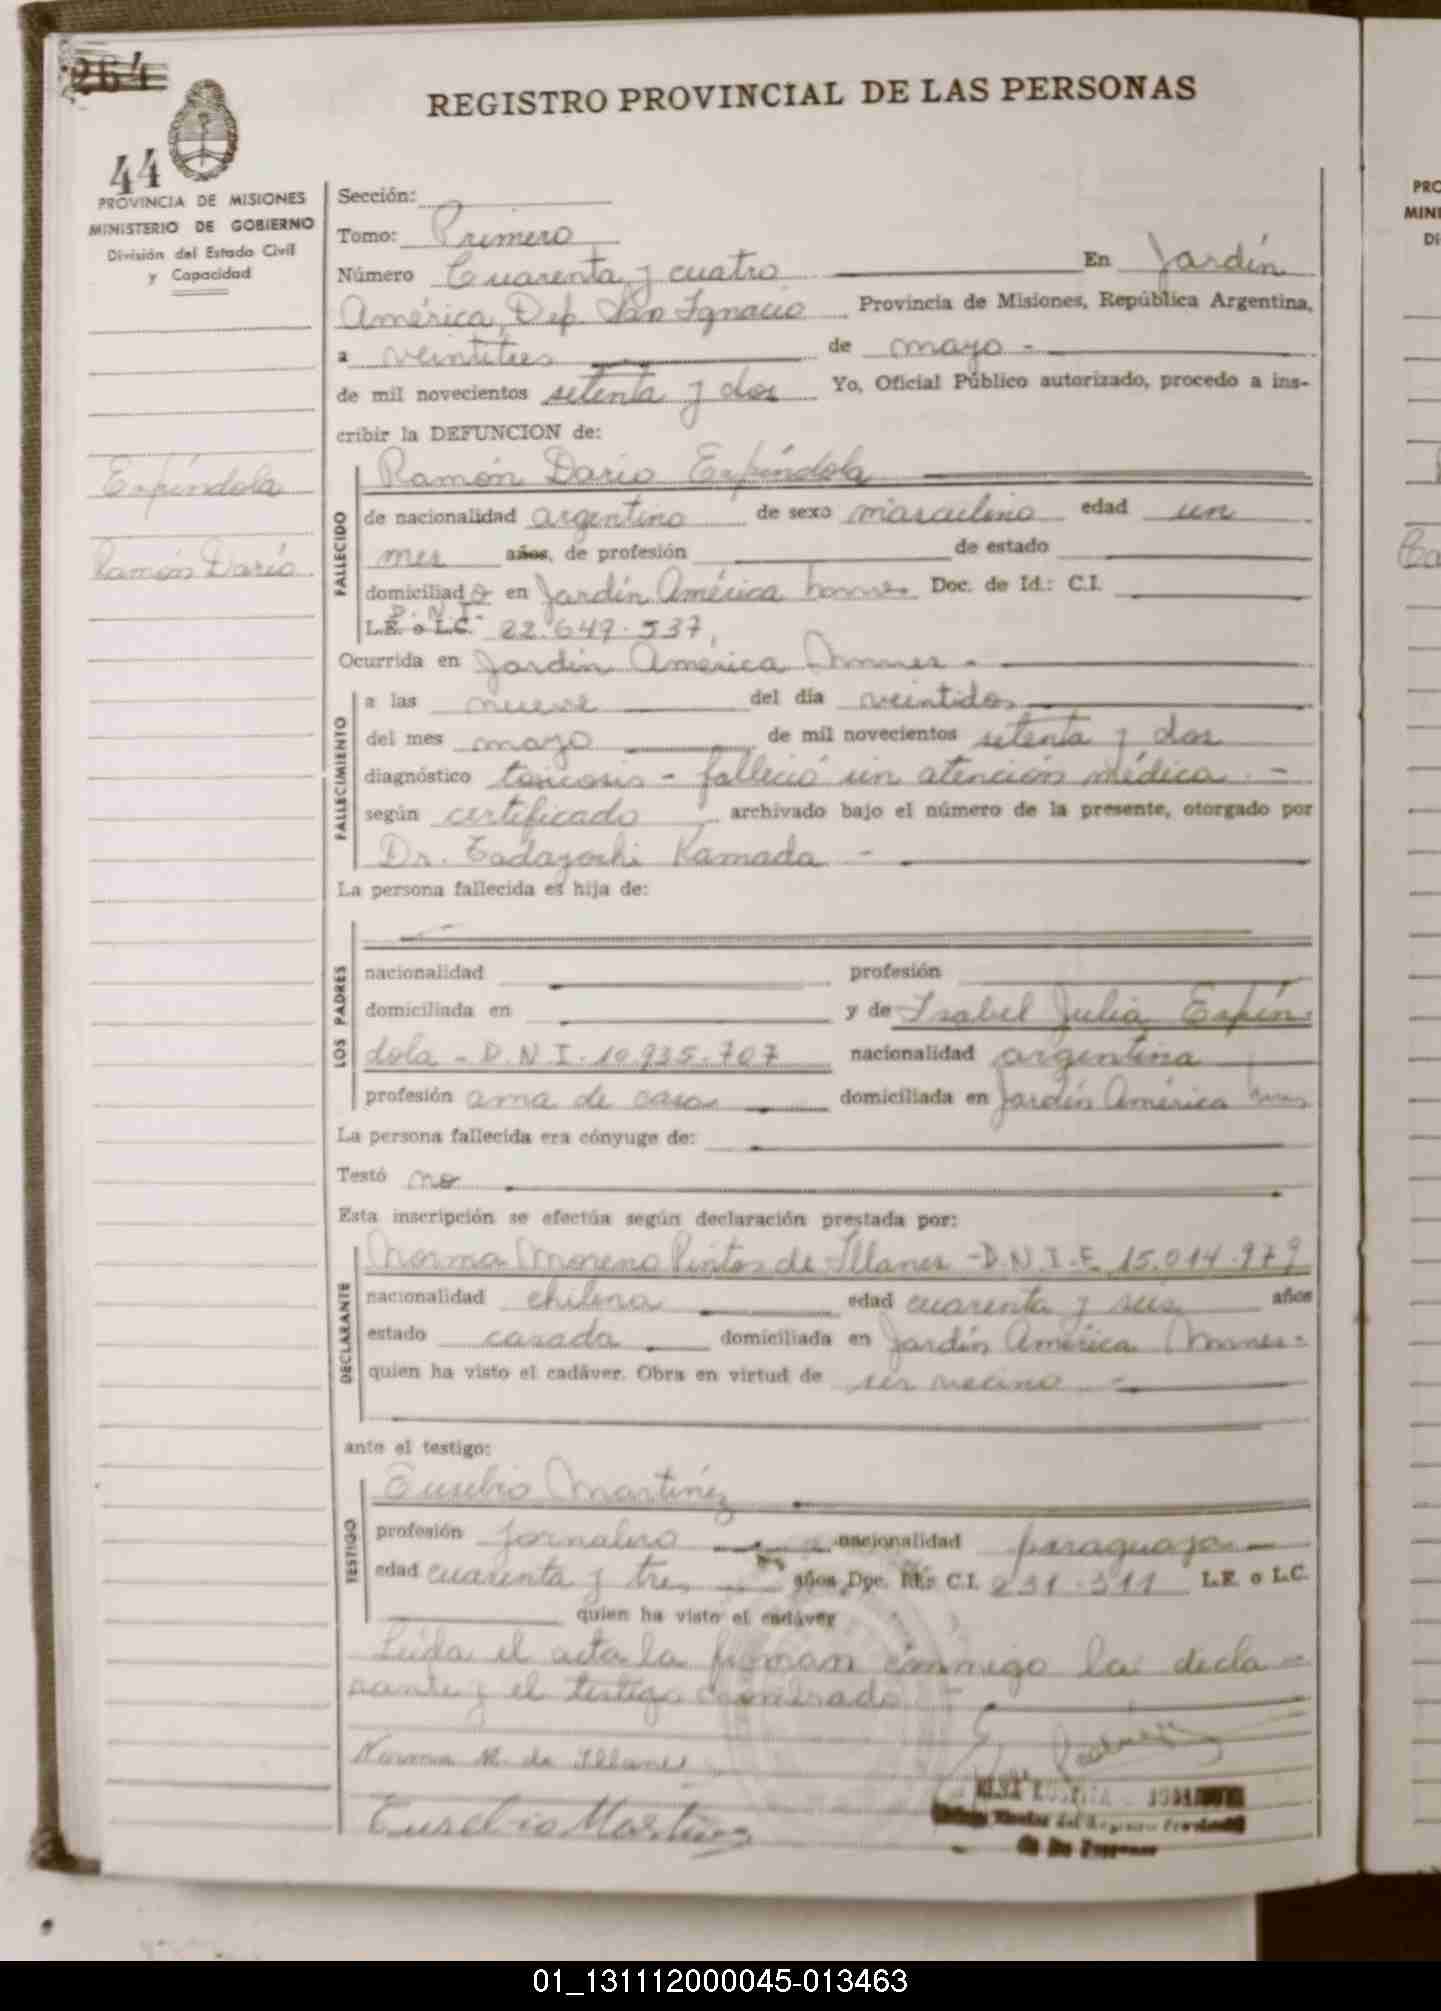 264
REGISTRO PROVINCIAL DE LAS PERSONAS
44
PROVINCIA DE MISIONES
MINISTERIO DE GOBIERNO
División del Estado Civil
y Capacidad
Espíndola
Ramón Darío
Sección:
Tomo: Primero
Número Cuarenta y cuatro En Jardín
América, Dep. San Ignacio Provincia de Misiones, República Argentina,
a veintitres de mayo -
de mil novecientos setenta y dos Yo, Oficial Público autorizado, procedo a ins-
cribir la DEFUNCION de:
FALLECIDO
Ramón Dario Espíndola
de nacionalidad argentino de sexo masculino edad un
mes años, de profesión de estado
domiciliado en Jardín América Doc. de Id.: C.I.
D.N.I.
L.E. o L.C. 22.649.537,
Ocurrida en Jardín América Mnes -
FALLECIMIENTO
a las nueve del día veintidos
del mes mayo de mil novecientos setenta y dos
diagnóstico toxicosis - falleció sin atención médica. -
según certificado archivado bajo el número de la presente, otorgado por
Dr. Tadayoshi Kamada -
La persona fallecida es hija de:
LOS PADRES
nacionalidad profesión
domiciliada en y de Isabel Julia Espín-
dola - D.N.I. 10.935.707 nacionalidad argentina
profesión ama de casa domiciliada en Jardín América
La persona fallecida era cónyuge de:
Testó no
Esta inscripción se efectúa según declaración prestada por:
DECLARANTE
Norma Moreno Pintos de Illanes - D.N.I.E. 15.014.979
nacionalidad chilena edad cuarenta y seis años
estado casada domiciliada en Jardín América Mnes-
quien ha visto el cadáver. Obra en virtud de ser vecino -
ante el testigo:
TESTIGO
Eusebio Martínez
profesión jornalero nacionalidad paraguaya
edad cuarenta y tres años Doc. Id.: C.I. 231.311 L.E. o L.C.
quien ha visto el cadáver
Leída el acta la firman conmigo la decla-
rante y el testigo
Norma M. de Illanes
Eusebio Martinez
de las Personas
PRO
MINI
Di
01_131112000045-013463